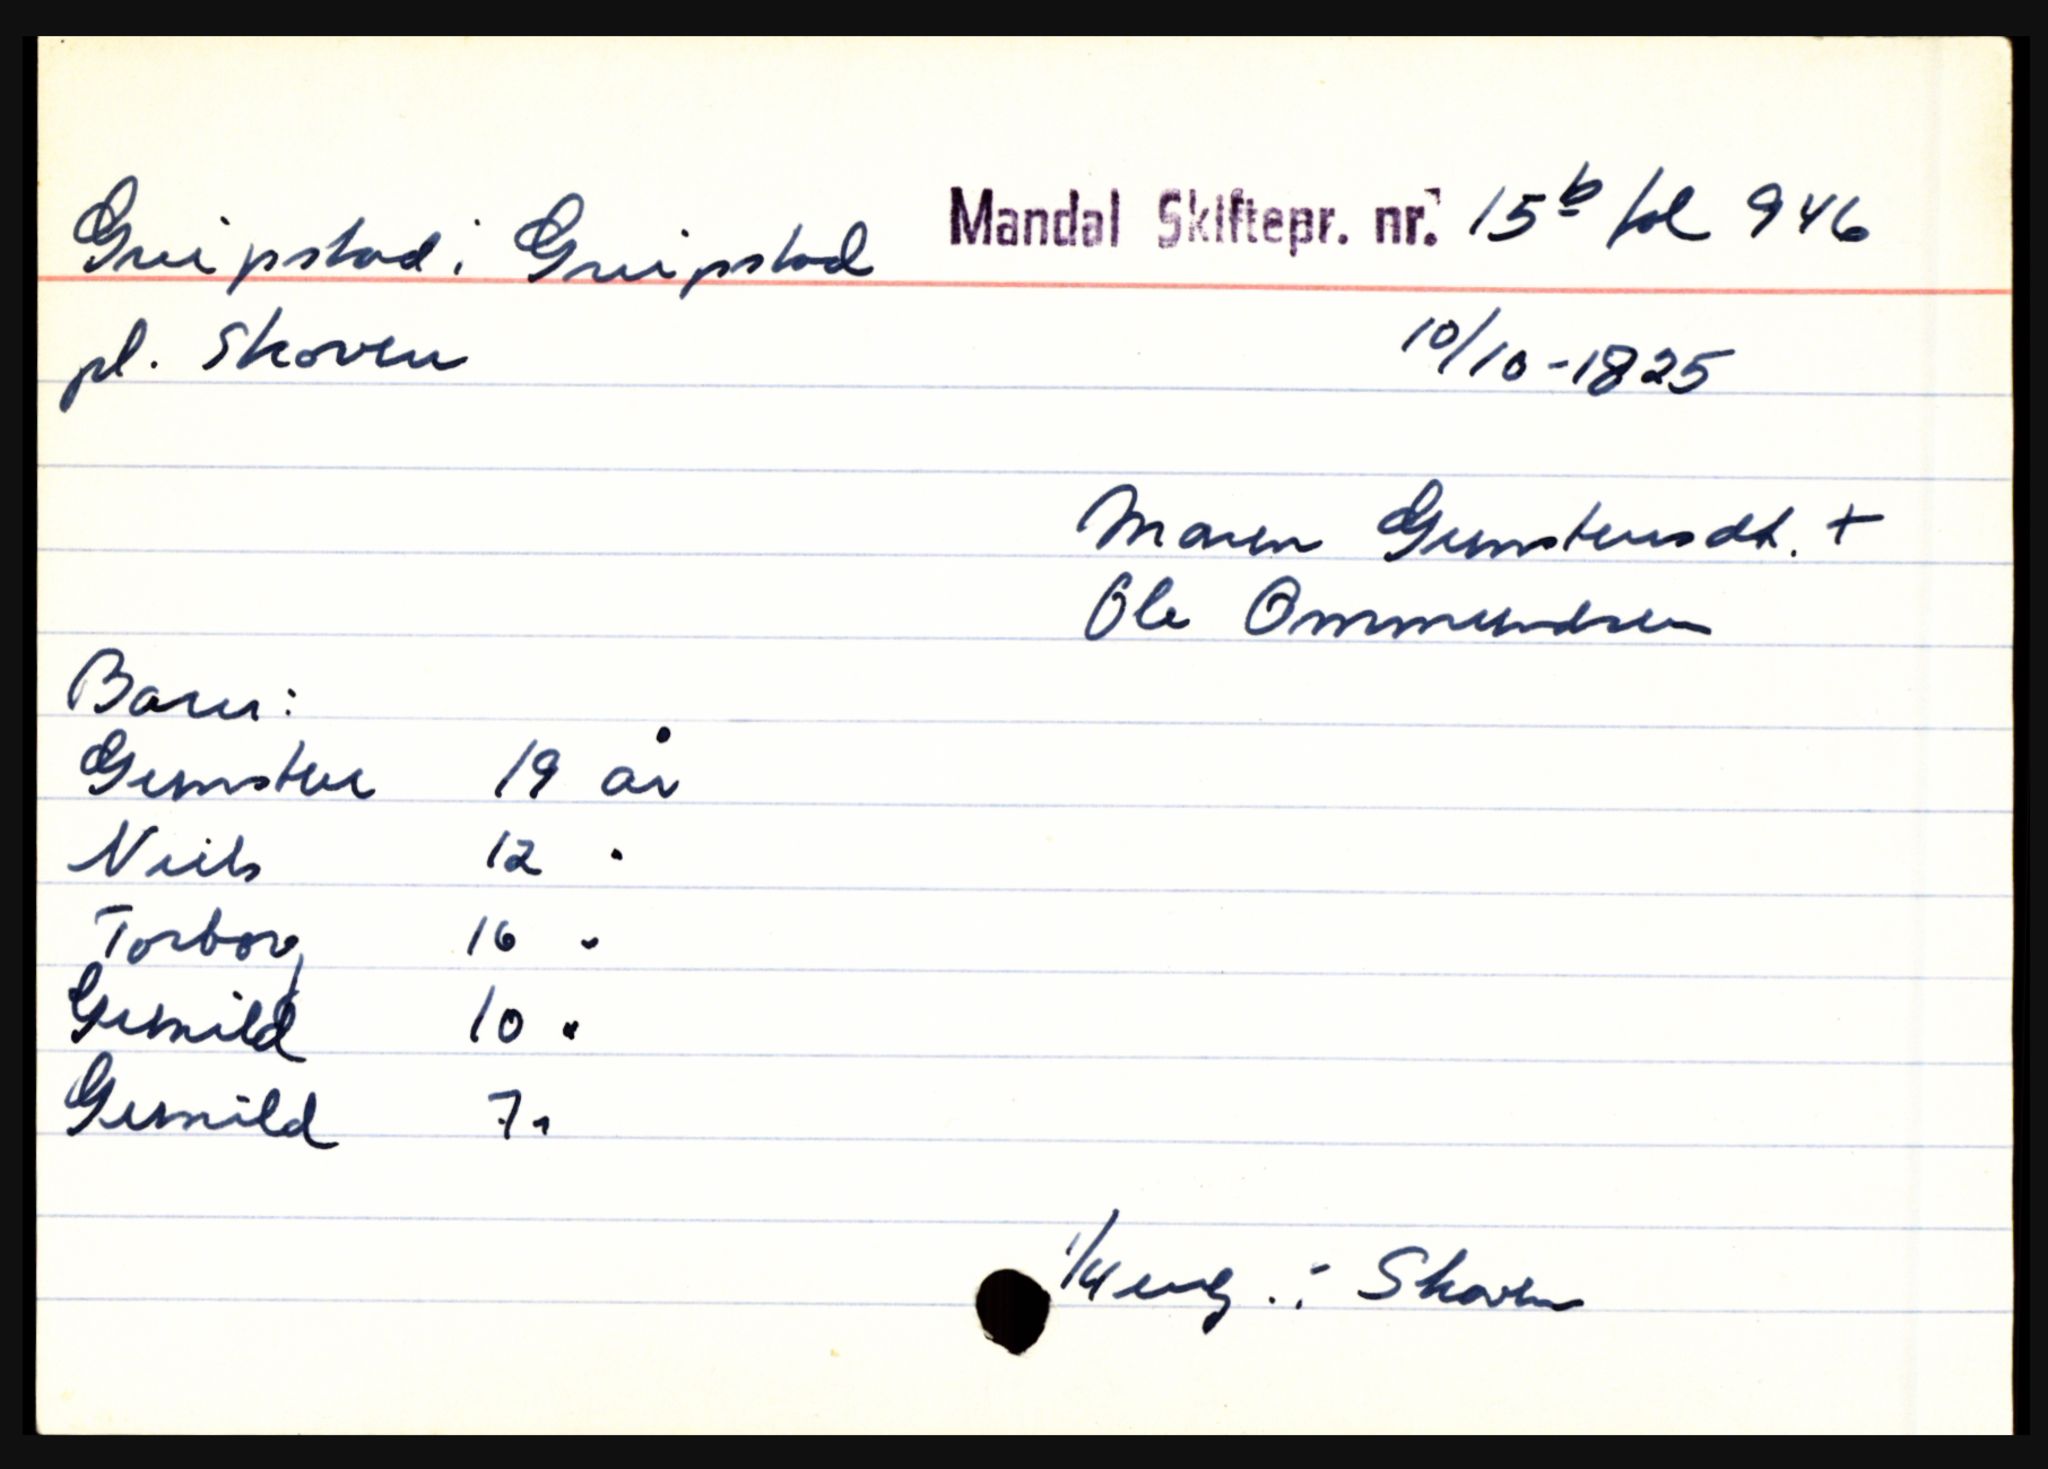 Greipstad i Greipstad Mandal Skiftepr. nr. 15b fol 946
pl. Skoven 10/10-1825
Maren Gunstensdt. +
Ole Ommundsen
Barn:
Gunsten 19 år
Niels 12 "
Torborg 16 "
Gunild 10 "
Gunild 7 "
1/4 eng .: Skoven